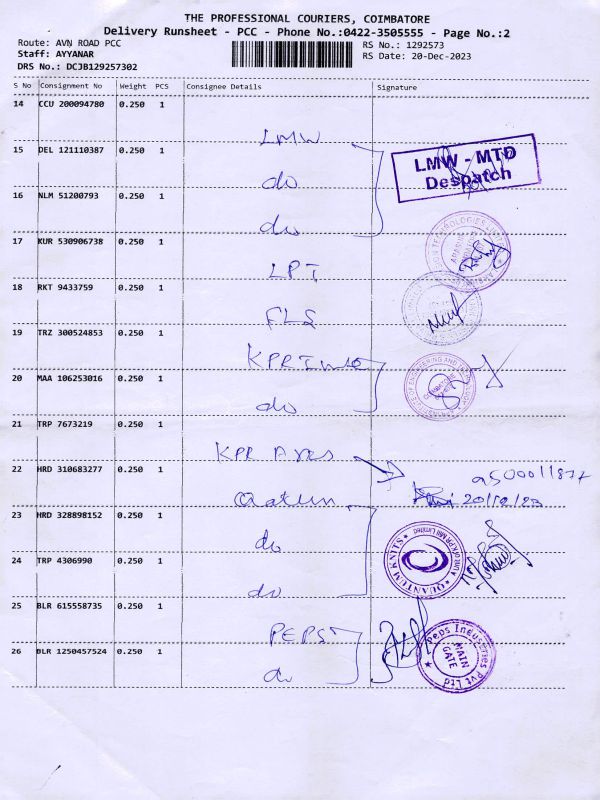 THE PROFESSIONAL COURIERS, COIMBATORE
Delivery Runsheet - PCC - Phone No.:0422-3505555 - Page No.:2
Route: AVN ROAD PCC
RS No.: 1292573
Staff: AYYANAR
RS Date: 20-Dec-2023
DRS No.: DCJB129257302
S No Consignment No Weight PCS Consignee Details Signature
14 CCU 200094780 0.250 1
LMW
15 DEL 121110387 0.250 1
do
LMW - MTD
Despatch
16 NLM 51200793 0.250 1
do
17 KUR 530906738 0.250 1
LPT
18 RKT 9433759 0.250 1
FLS
19 TRZ 300524853 0.250 1
KPR
20 MAA 106253016 0.250 1
do
21 TRP 7673219 0.250 1
KPR
22 HRD 310683277 0.250 1
20/12/23
23 HRD 328898152 0.250 1
do
QUANTUM KNITS
A Unit of K.P.R Mill Limited
24 TRP 4306990 0.250 1
do
25 BLR 615558735 0.250 1
PEPS
Peps Industries Pvt Ltd
MAIN
GATE
26 BLR 1250457524 0.250 1
do